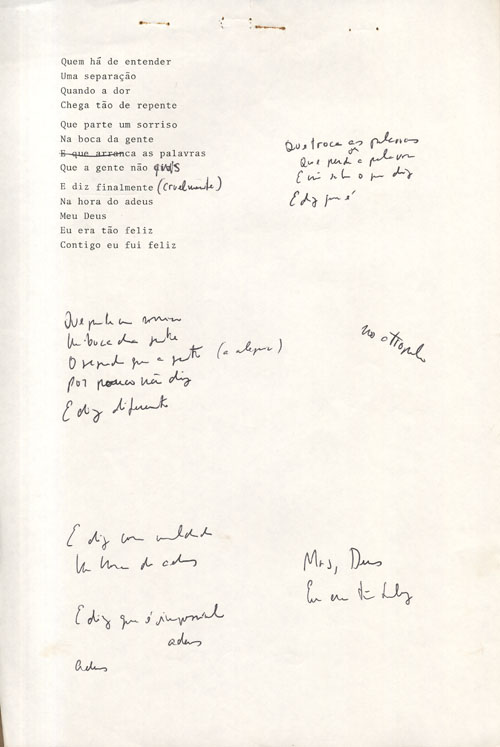 Quem há de entender
Uma separação
Quando a dor
Chega tão de repente
Que parte um sorriso
Na boca da gente
E que arranca as palavras
Que a gente não quis
E diz finalmente (cruelmente)
Na hora do adeus
Meu Deus
Eu era tão feliz
Contigo eu fui feliz
Que troca as palavras
Que perde a palavra
E diz que é
Que parte um sorriso
Na boca da gente
O segredo que a gente (a alegria)
Por pouco não diz
E diz diferente
no atropelo
E diz com maldade
Na hora do adeus
E diz que é impossível
adeus
Adeus
Mas, Deus
Eu era tão feliz